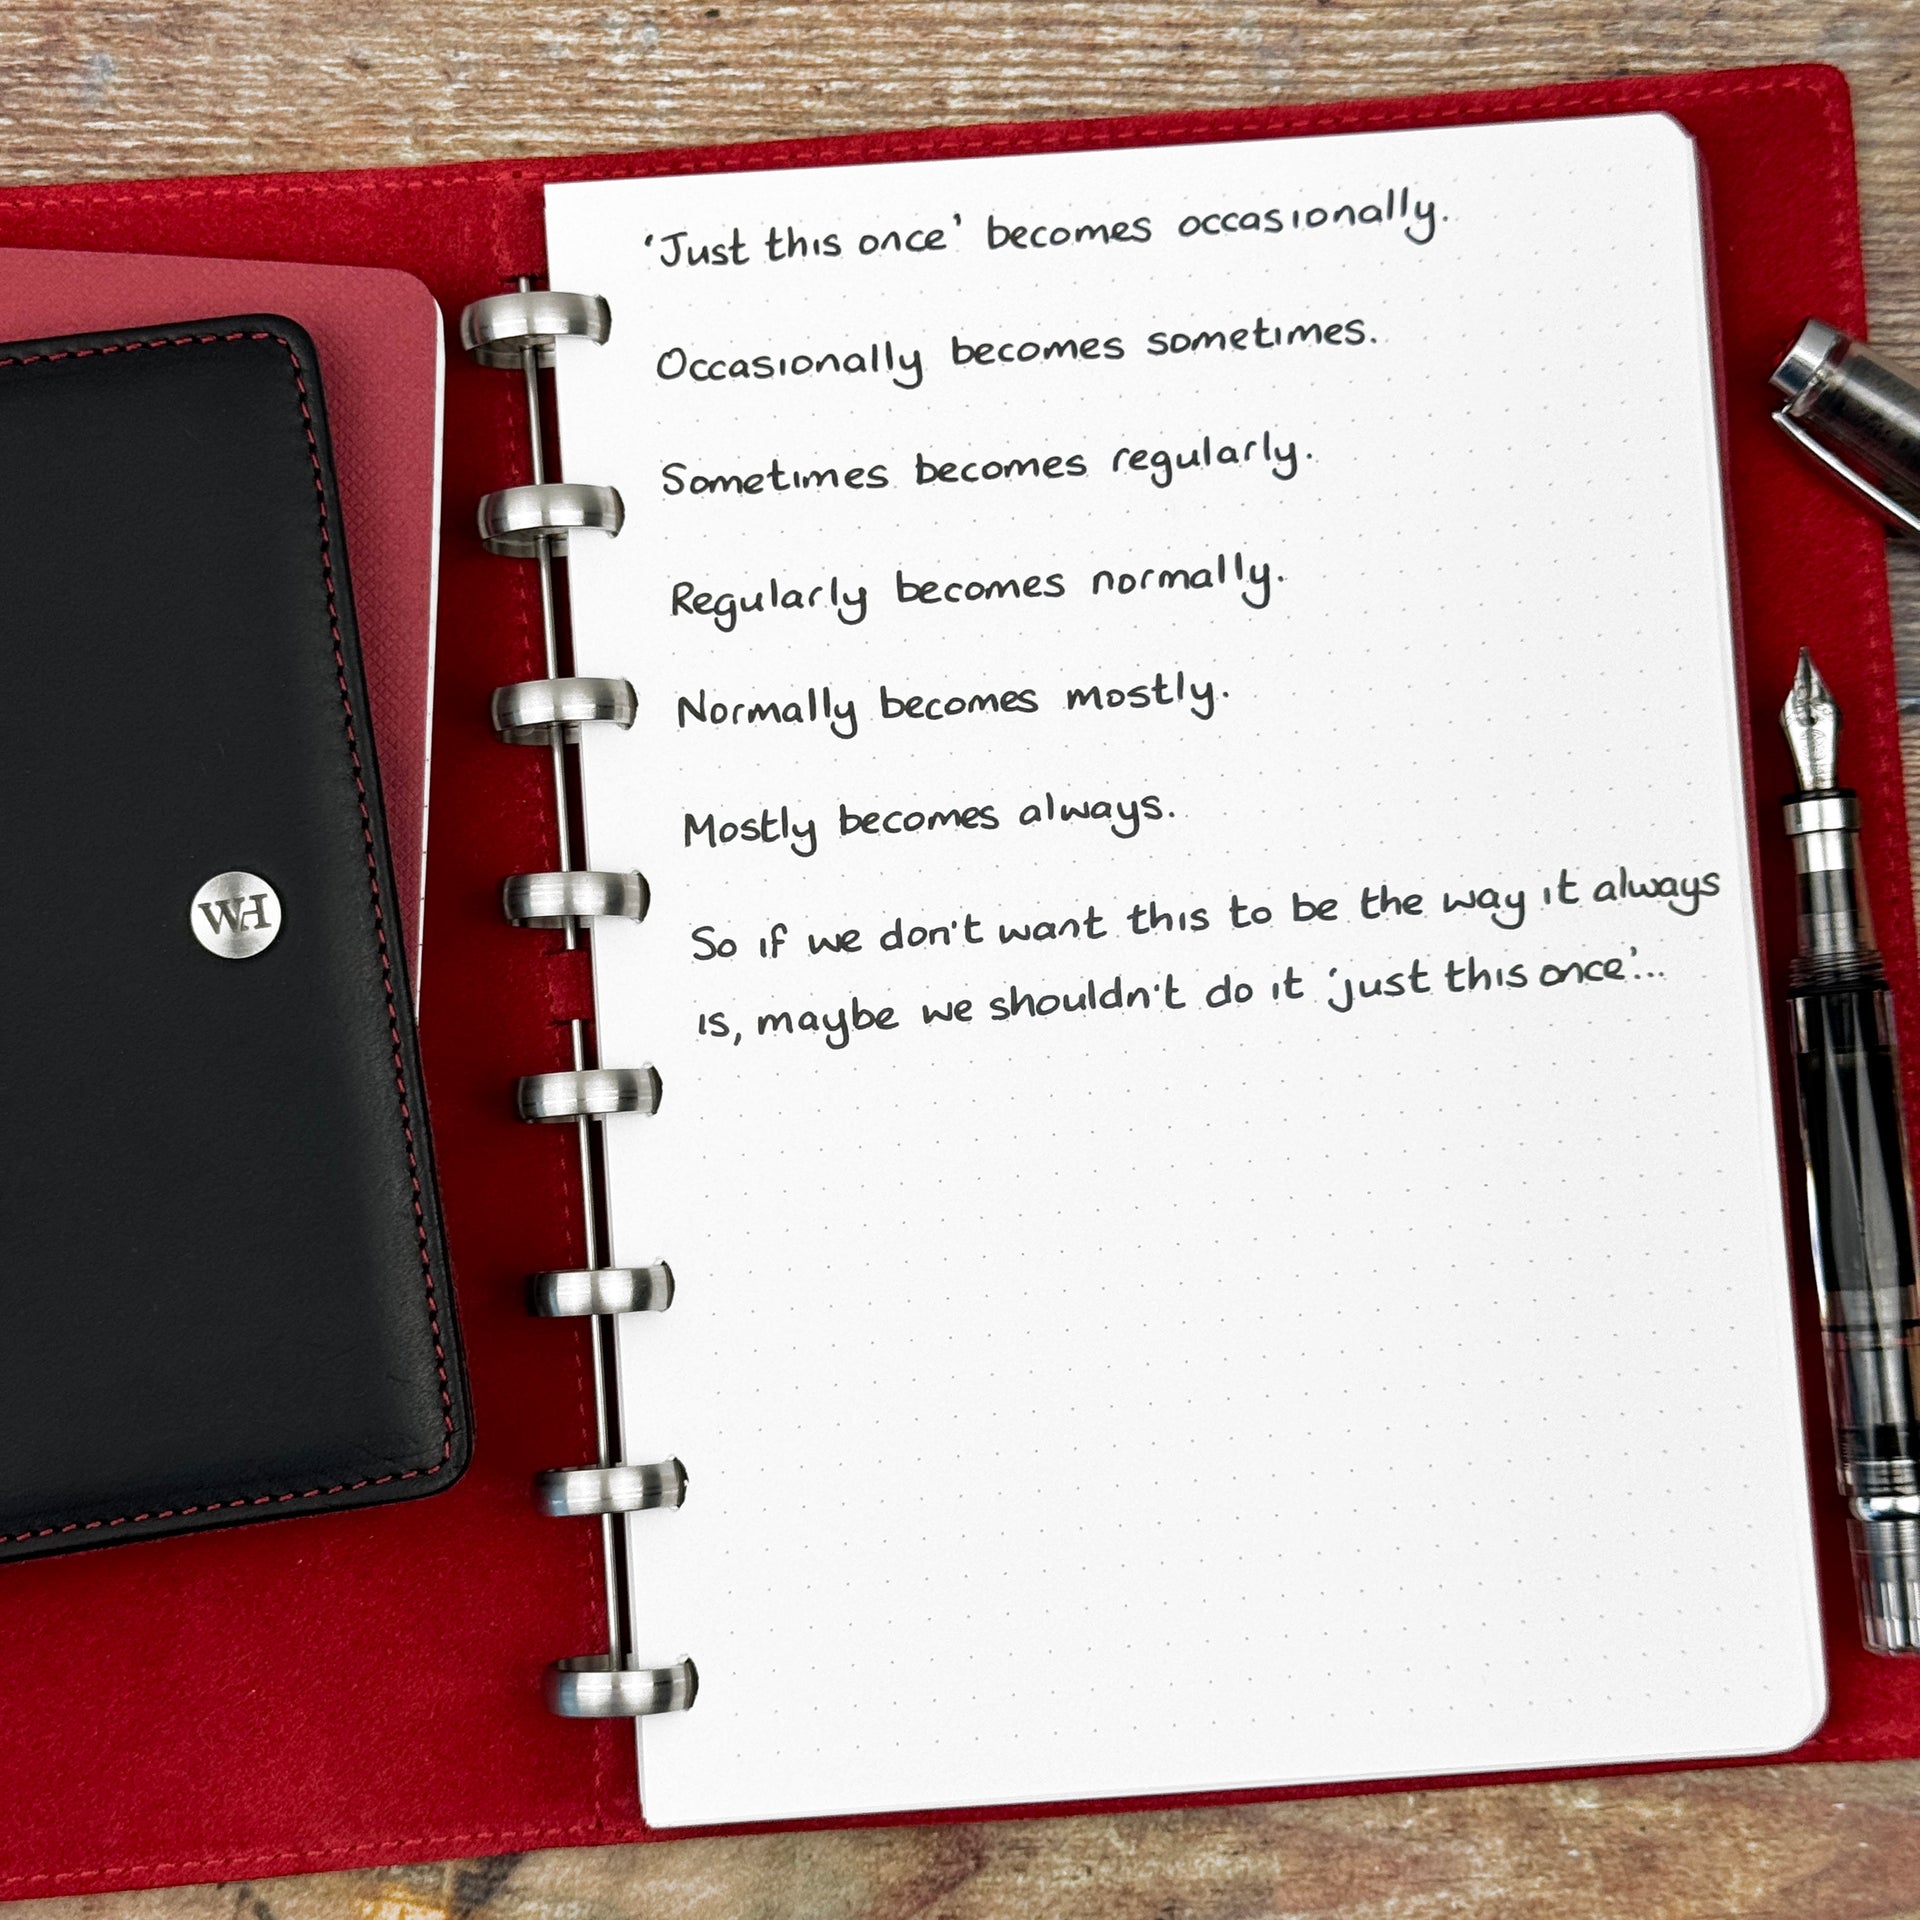 'Just this once' becomes occasionally.
Occasionally becomes sometimes.
Sometimes becomes regularly.
Regularly becomes normally.
Normally becomes mostly.
Mostly becomes always.
So if we don't want this to be the way it always
is, maybe we shouldn't do it 'just this once'...
WH